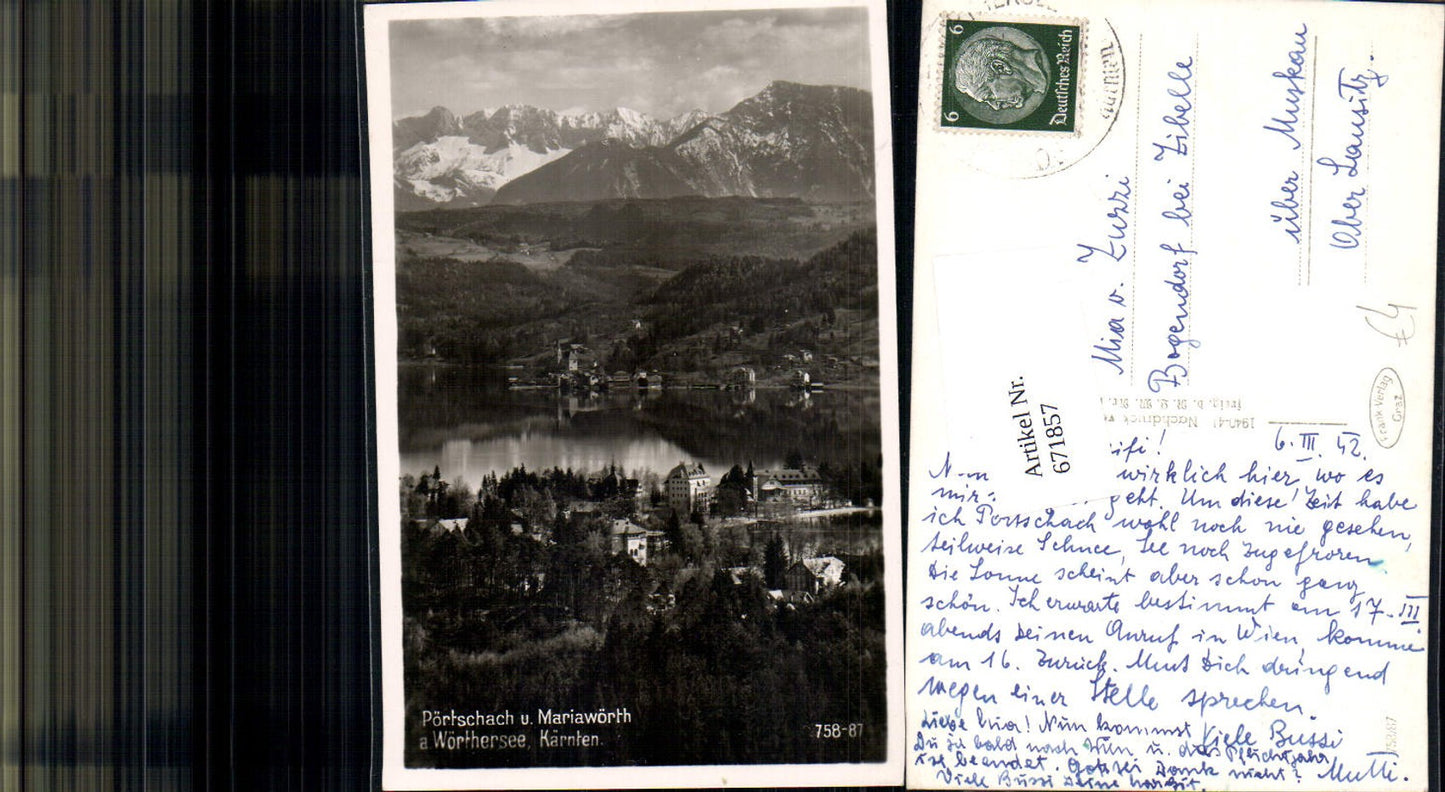 Pörtschach u. Mariawörth
a. Wörthersee, Kärnten.
758-87
6
6
Deutsches Reich
Mia v. Zuzzi
Bogendorf bei Zibelle
über Muskau
Ober Lausitz.
€4
Frank Verlag
Graz
1940-41 Nachdruck
Artikel Nr.
671857
6. III. 42.
wirklich hier, wo es
mir geht. Um diese Zeit habe
ich Pörtschach wohl noch nie gesehen,
teilweise Schnee, See noch zugefroren.
Die Sonne scheint aber schon ganz
schön. Ich erwarte bestimmt am 17. III
abends Deinen Anruf in Wien, komme
am 16. zurück. Muss Dich dringend
wegen einer Stelle sprechen.
Viele Bussi
Mutti.
Liebe Mia! Nun kommst
Du ja bald nach Wien u. das Pflichtjahr
ist beendet. Gott sei Dank nicht?
Viele Bussi Deine
75887